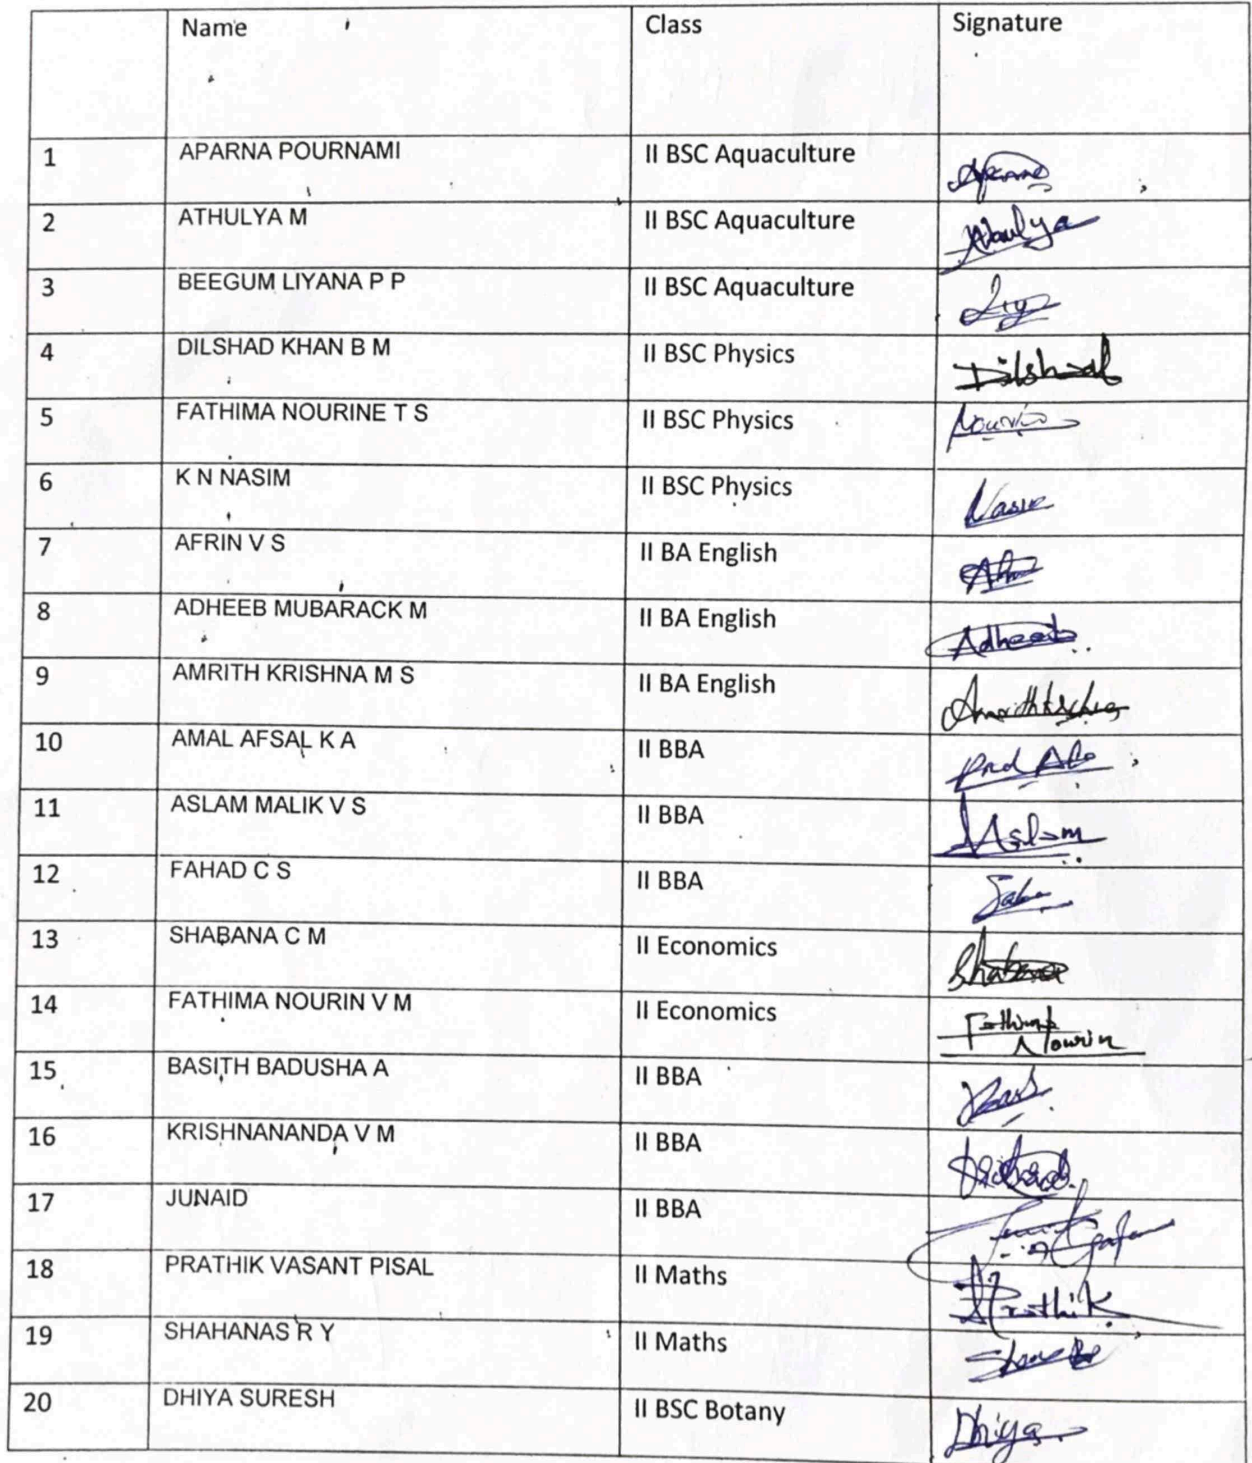 Name Class Signature
1 APARNA POURNAMI II BSC Aquaculture Aparna
2 ATHULYA M II BSC Aquaculture Athulya
3 BEEGUM LIYANA P P II BSC Aquaculture
4 DILSHAD KHAN B M II BSC Physics Dilshad
5 FATHIMA NOURINE T S II BSC Physics
6 K N NASIM II BSC Physics
7 AFRIN V S II BA English
8 ADHEEB MUBARACK M II BA English Adheeb
9 AMRITH KRISHNA M S II BA English
10 AMAL AFSAL K A II BBA
11 ASLAM MALIK V S II BBA Aslam
12 FAHAD C S II BBA
13 SHABANA C M II Economics Shabana
14 FATHIMA NOURIN V M II Economics Fathima
Nourin
15 BASITH BADUSHA A II BBA
16 KRISHNANANDA V M II BBA
17 JUNAID II BBA
18 PRATHIK VASANT PISAL II Maths Prathik
19 SHAHANAS R Y II Maths
20 DHIYA SURESH II BSC Botany Dhiya